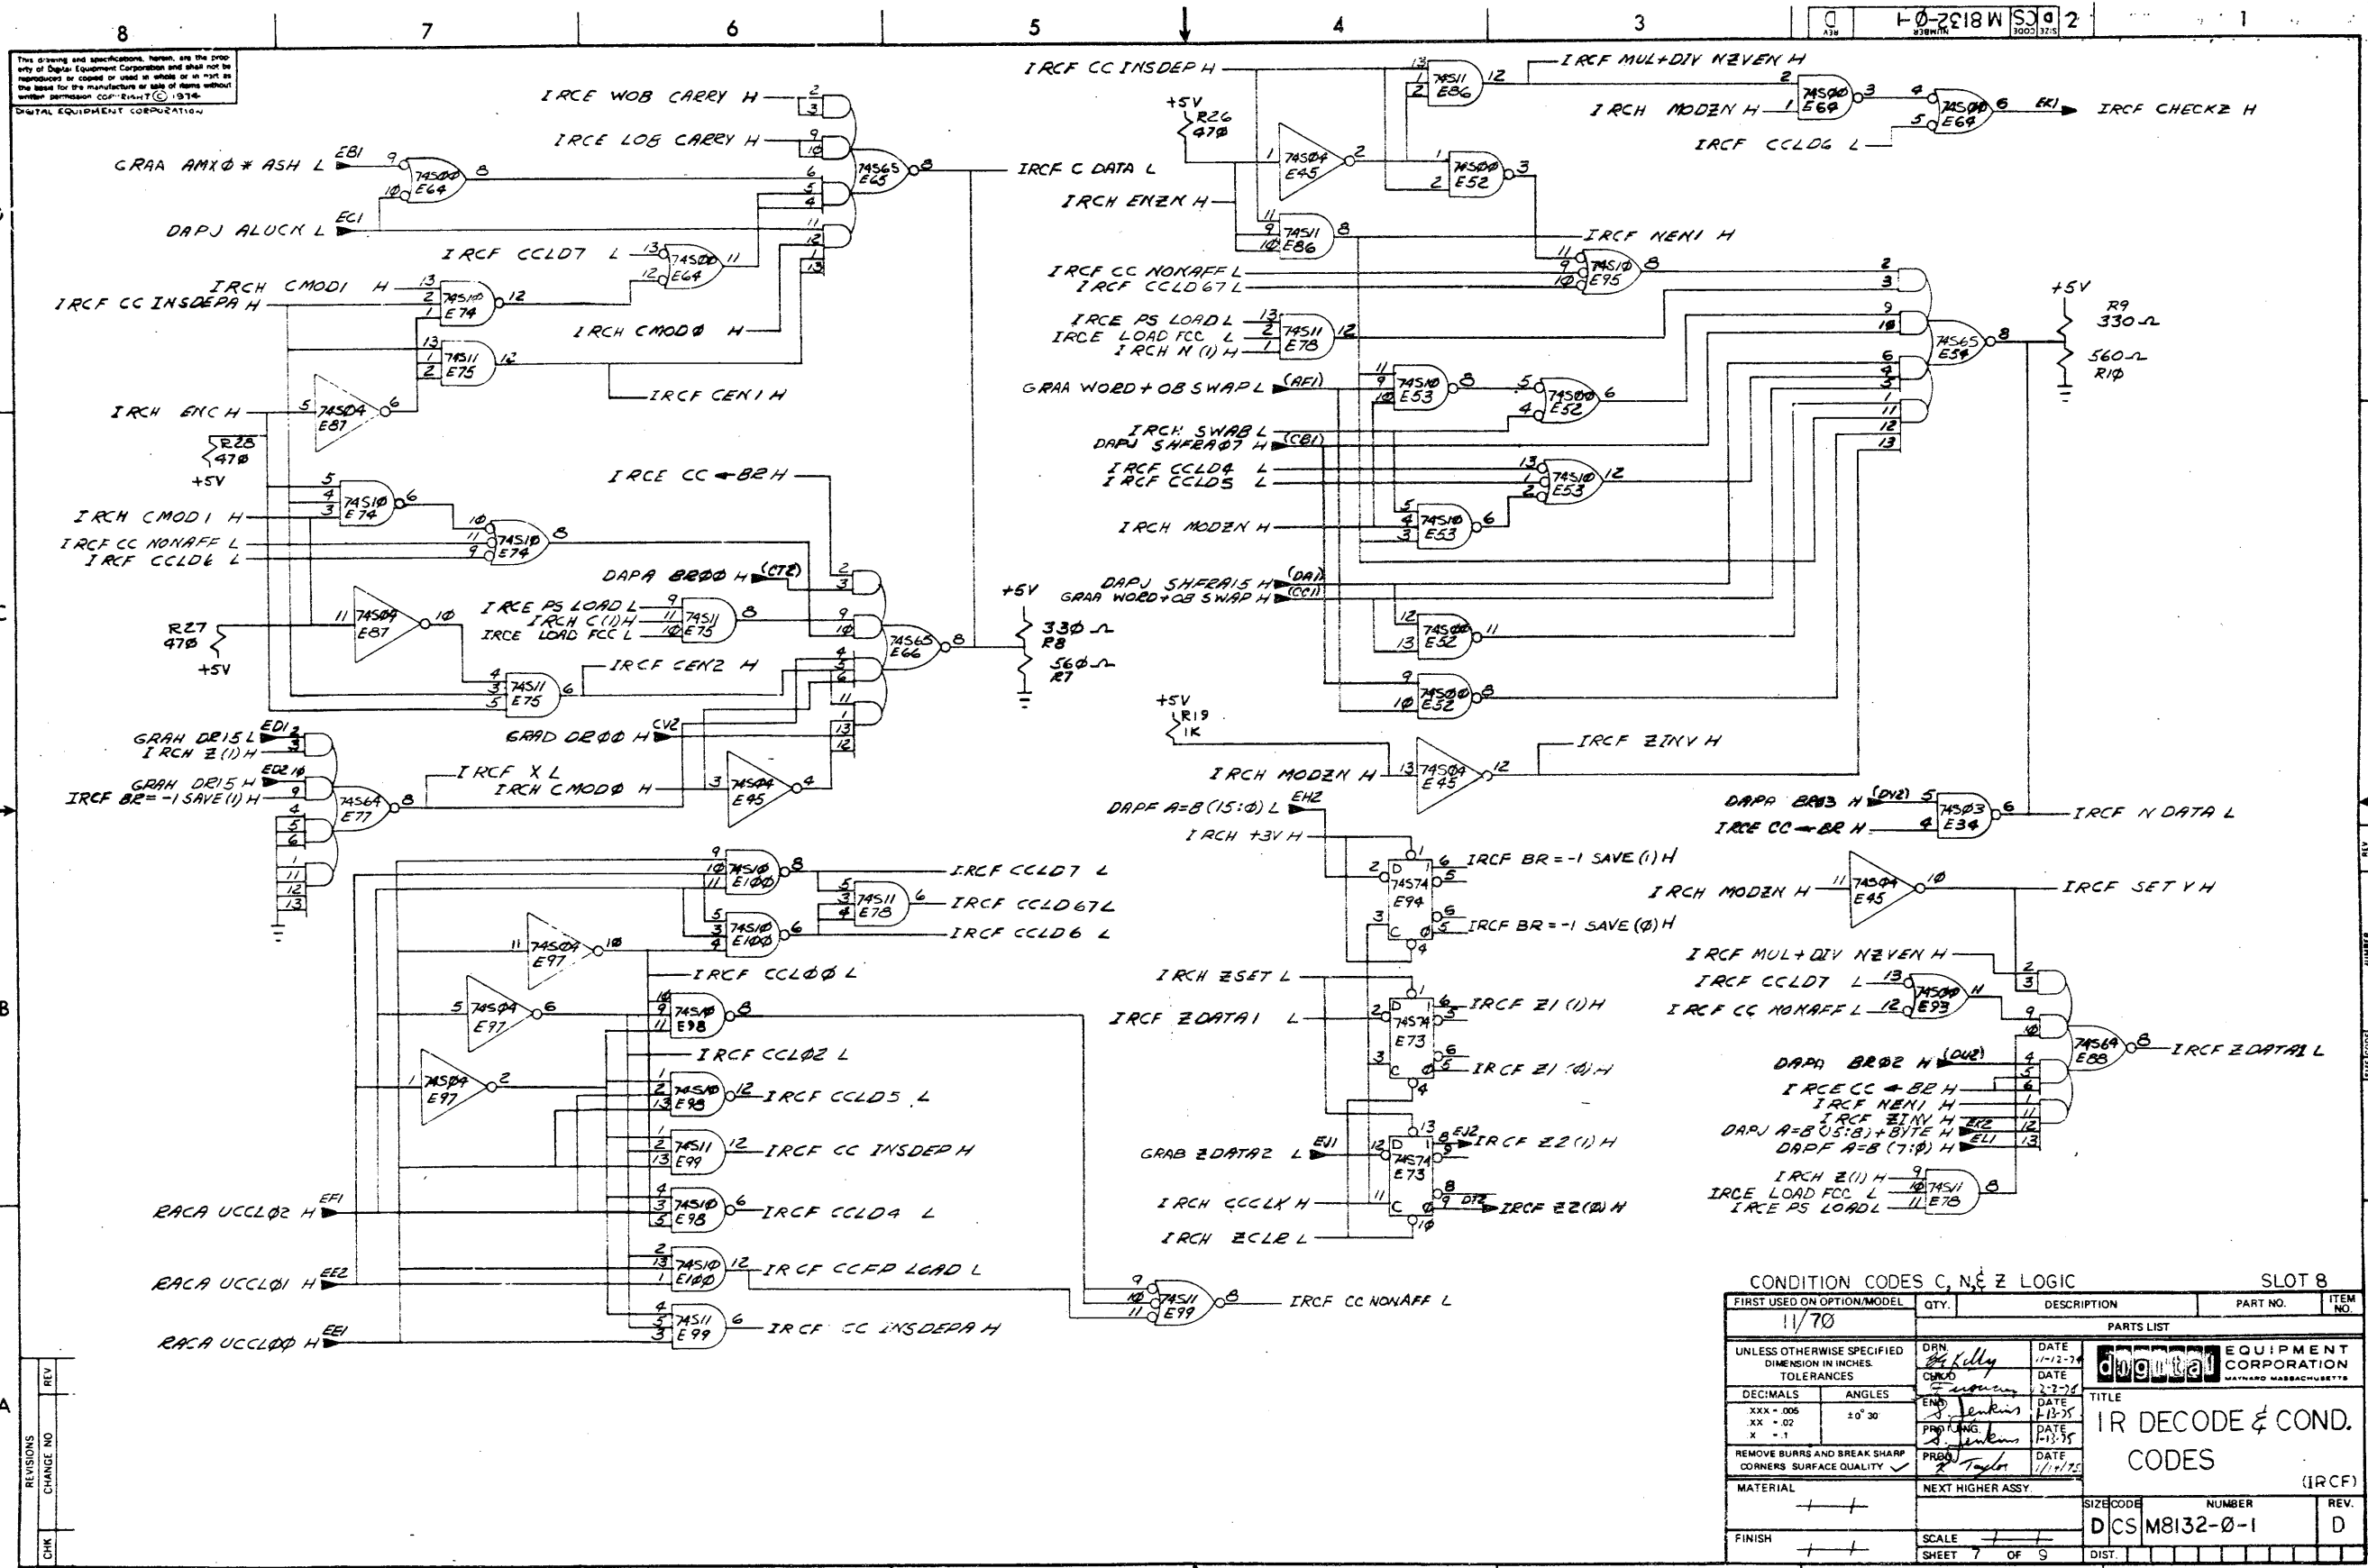 8 7 6 5 4 3 2 1
SIZE CODE NUMBER REV
D CS M8132-Ø-1 D
This drawing and specifications, herein, are the prop-
erty of Digital Equipment Corporation and shall not be
reproduced or copied or used in whole or in part as
the basis for the manufacture or sale of items without
written permission. COPYRIGHT © 1974
DIGITAL EQUIPMENT CORPORATION
IRCE WOB CARRY H
IRCE LOB CARRY H
GRAA AMXØ * ASH L EB1
74SØØ E64
74S65 E65
IRCF C DATA L
DAPJ ALUCN L EC1
IRCF CCLD7 L
74SØØ E64
IRCH CMOD1 H
IRCF CC INSDEPA H
74S1Ø E74
IRCH CMODØ H
74S11 E75
IRCF CEN1 H
IRCH ENC H
74SØ4 E87
R28 47Ø +5V
IRCE CC ← BR H
74S1Ø E74
IRCH CMOD1 H
IRCF CC NONAFF L
IRCF CCLD6 L
74S1Ø E74
DAPA BRØØ H (CT2)
IRCE PS LOAD L
IRCH C(1) H
IRCE LOAD FCC L
74S11 E75
74S65 E66
+5V
33Ø Ω R8
56Ø Ω R7
R27 47Ø +5V
74SØ4 E87
IRCF CEN2 H
74S11 E75
GRAD DRØØ H CV2
GRAH DR15 L ED1
IRCH Z(1) H
GRAH DR15 H ED2
IRCF BR=-1 SAVE(1) H
74S64 E77
IRCF X L
IRCH CMODØ H
74SØ4 E45
74S1Ø E1ØØ
IRCF CCLD7 L
74S11 E78
IRCF CCLD67 L
74S1Ø E1ØØ
IRCF CCLD6 L
74SØ4 E97
IRCF CCLØØ L
74SØ4 E97
74S1Ø E98
IRCF CCLØ2 L
74SØ4 E97
74S1Ø E98
IRCF CCLD5 L
74S11 E99
IRCF CC INSDEP H
RACA UCCLØ2 H EF1
74S1Ø E98
IRCF CCLD4 L
RACA UCCLØ1 H EE2
74S1Ø E1ØØ
IRCF CCFP LOAD L
RACA UCCLØØ H EE1
74S11 E99
IRCF CC INSDEPA H
74S11 E99
IRCF CC NONAFF L
IRCF CC INSDEP H
74S11 E86
IRCF MUL+DIV NZVEN H
IRCH MODZN H
74SØØ E64
74SØØ E64
EK1 IRCF CHECKZ H
IRCF CCLD6 L
+5V R26 47Ø
74SØ4 E45
74SØØ E52
IRCH ENZN H
74S11 E86
IRCF NEN1 H
IRCF CC NONAFF L
IRCF CCLD67 L
74S1Ø E95
IRCE PS LOAD L
IRCE LOAD FCC L
IRCH N(1) H
74S11 E78
GRAA WORD+OB SWAP L (AF1)
74S1Ø E53
74SØØ E52
IRCH SWAB L
DAPJ SHFRAØ7 H (CB1)
IRCF CCLD4 L
IRCF CCLD5 L
74S1Ø E53
IRCH MODZN H
74S1Ø E53
DAPJ SHFRA15 H (DA1)
GRAA WORD+OB SWAP H (CC1)
74SØØ E52
74SØØ E52
74S65 E54
+5V
R9 33Ø Ω
56Ø Ω R1Ø
+5V R19 1K
IRCH MODZN H
74SØ4 E45
IRCF ZINV H
DAPA BRØ3 H (DV2)
IRCE CC ← BR H
74SØ3 E34
IRCF N DATA L
DAPF A=B(15:Ø) L EH2
IRCH +3V H
74S74 E94
IRCF BR=-1 SAVE(1) H
IRCF BR=-1 SAVE(Ø) H
IRCH MODZN H
74SØ4 E45
IRCF SETV H
IRCH ZSET L
IRCF ZDATA1 L
74S74 E73
IRCF Z1(1) H
IRCF Z1(Ø) H
GRAB ZDATA2 L EJ1
74S74 E73
EJ2 IRCF Z2(1) H
DT2 IRCF Z2(Ø) H
IRCH CCCLK H
IRCH ZCLR L
IRCF MUL+DIV NZVEN H
IRCF CCLD7 L
IRCF CC NONAFF L
74SØØ E93
DAPA BRØ2 H (DU2)
IRCE CC ← BR H
IRCF NEN1 H
IRCF ZINV H
DAPJ A=B(15:8)+BYTE H EK2
DAPF A=B(7:Ø) H EL1
74S64 E88
IRCF ZDATA1 L
IRCH Z(1) H
IRCE LOAD FCC L
IRCE PS LOAD L
74S11 E78
CONDITION CODES C, N, & Z LOGIC SLOT 8
FIRST USED ON OPTION/MODEL
11/7Ø
QTY. DESCRIPTION PART NO. ITEM NO.
PARTS LIST
UNLESS OTHERWISE SPECIFIED
DIMENSION IN INCHES.
TOLERANCES
DECIMALS ANGLES
.XXX - .005
.XX - .02
.X - .1
±0° 30'
REMOVE BURRS AND BREAK SHARP
CORNERS SURFACE QUALITY
MATERIAL
FINISH
DRN. DATE
CHK'D DATE
ENG. S. Jenkins DATE 1-13-75
PROJ. ENG. S. Jenkins DATE 1-13-75
PROD. Taylor DATE
NEXT HIGHER ASSY.
SCALE
SHEET 7 OF 9
digital EQUIPMENT
CORPORATION
MAYNARD MASSACHUSETTS
TITLE
IR DECODE & COND.
CODES
(IRCF)
SIZE CODE NUMBER REV.
D CS M8132-Ø-1 D
DIST.
REVISIONS
CHK CHANGE NO REV
C B A